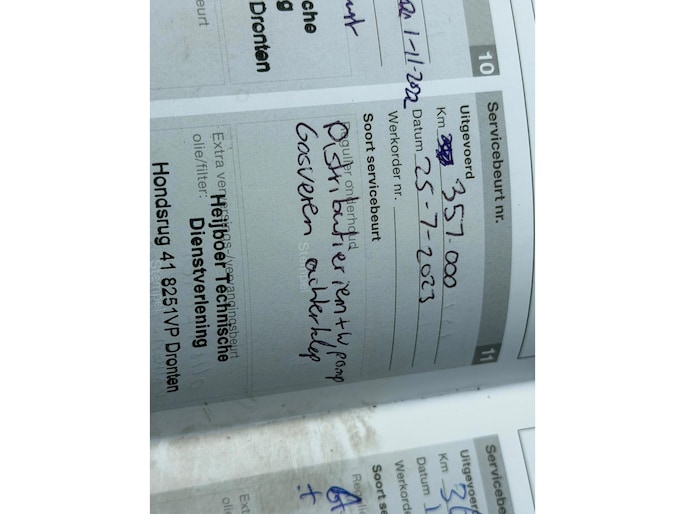 10
1-11-2022
eurt
che
g
Dronten
Servicebeurt nr. 11
Uitgevoerd
Km 357.000
Datum 25-7-2023
Werkorder nr.
Soort servicebeurt
Regulier onderhoud
Distributieriem + w pomp
Gasveren achterklep
Stempel
Extra verversings-/vervangingsbeurt
olie/filter:
Heijboer Technische
Dienstverlening
Hondsrug 41 8251VP Dronten
Servicebe
Uitgevoer
Km 36
Datum 1
Werkorde
Soort se
Regulie
+
Ext
olie